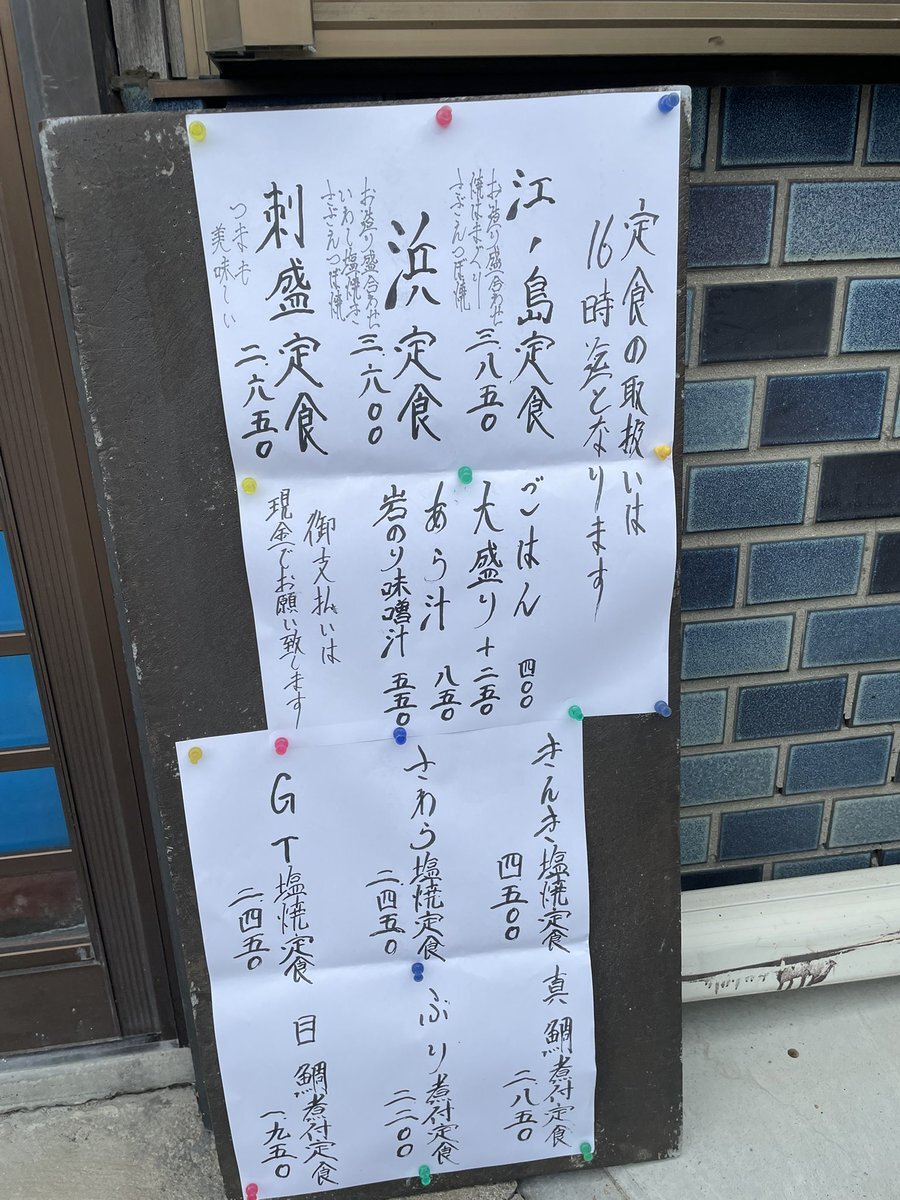 定食の取扱いは
16時迄となります
江ノ島定食
三.八五〇
お造り盛合わせ
焼はまぐり
さざえつぼ焼
浜定食
三.六〇〇
お造り盛合わせ
いわし塩焼き
さざえつぼ焼
刺盛定食
二.六五〇
つまも
美味しい
ごはん 四〇〇
大盛り+二五〇
あら汁 八五〇
岩のり味噌汁 五五〇
御支払いは
現金でお願い致します
きんき塩焼定食
四五〇〇
さわら塩焼定食
二.四五〇
GT塩焼定食
二.四五〇
真鯛煮付定食
二.八五〇
ぶり煮付定食
二二〇〇
目鯛煮付定食
一.九五〇